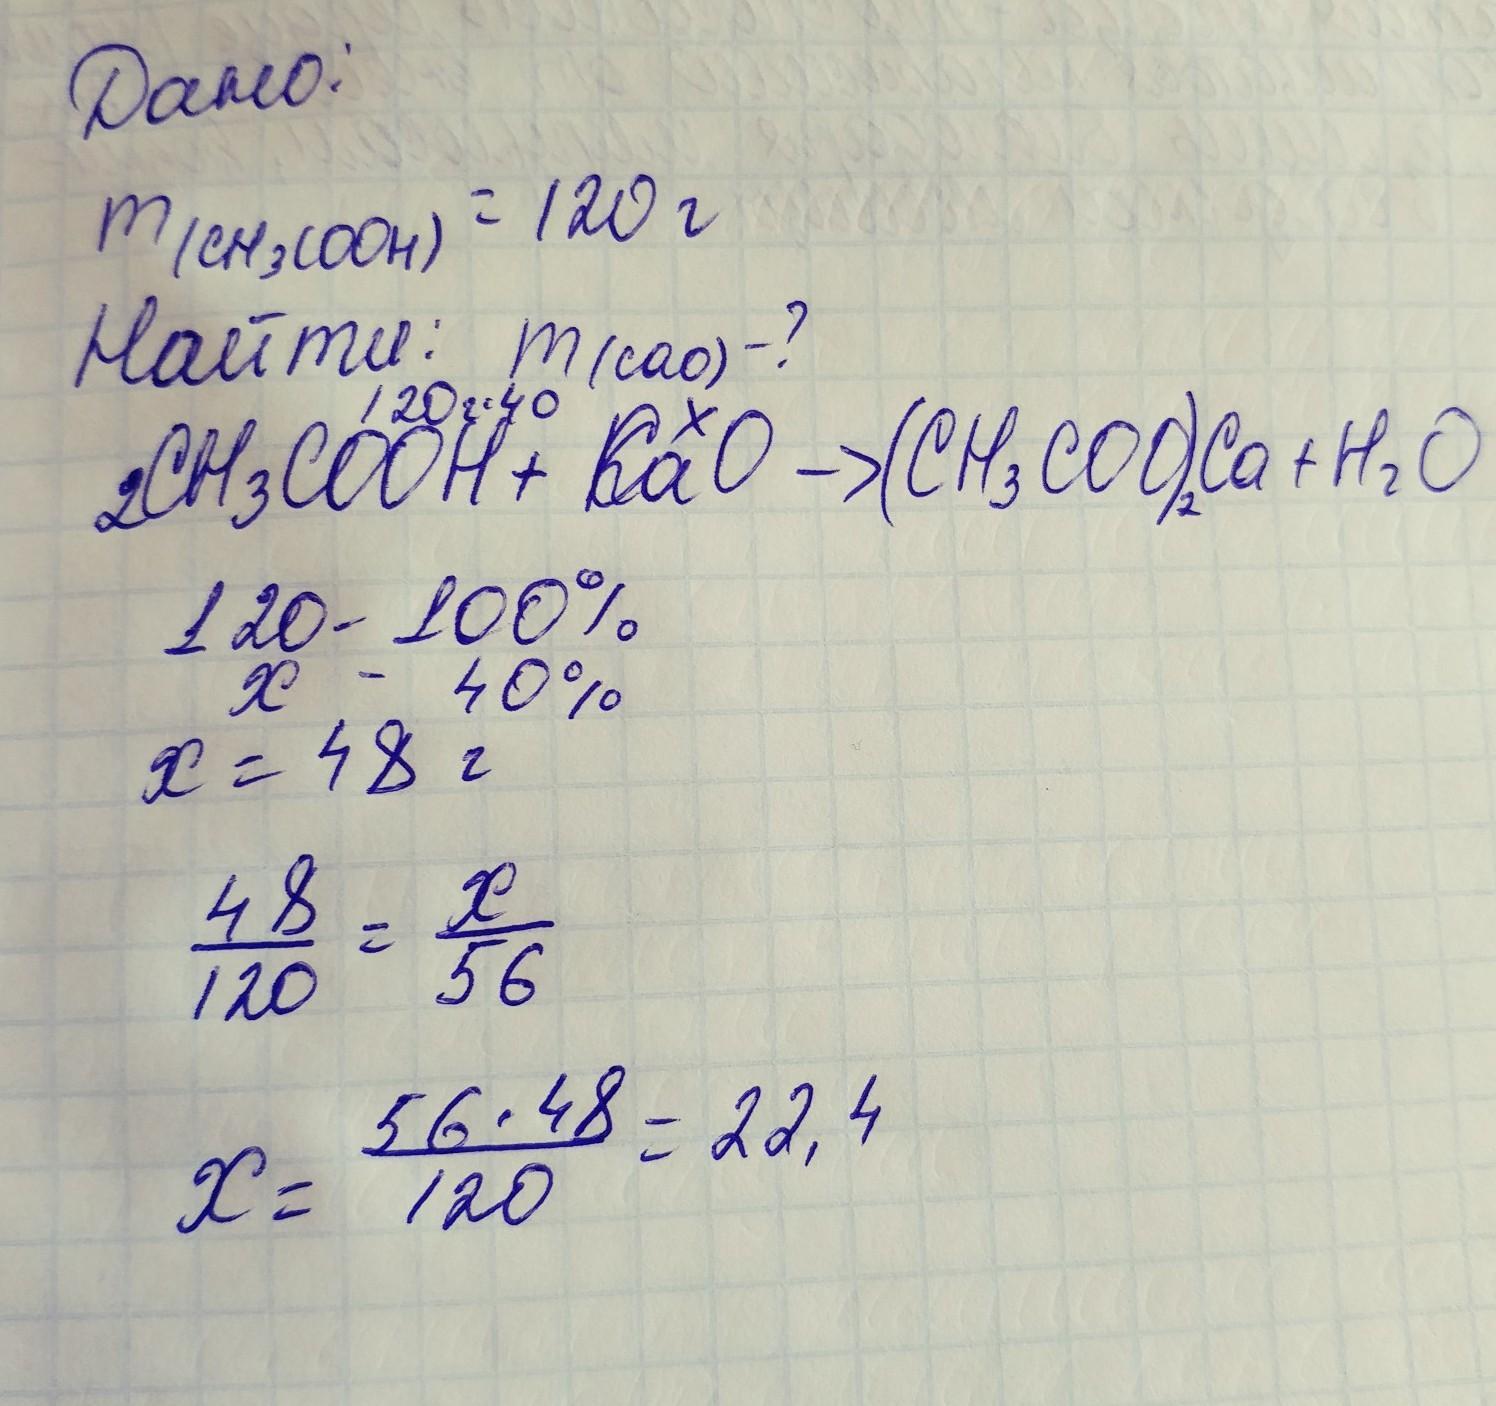 Дано:
m(CH₃COOH) = 120 г
Найти: m(CaO) - ?
120г·40 x
2CH₃COOH + CaO -> (CH₃COO)₂Ca + H₂O
120 - 100%
x - 40%
x = 48 г
48/120 = x/56
x = 56·48/120 = 22,4